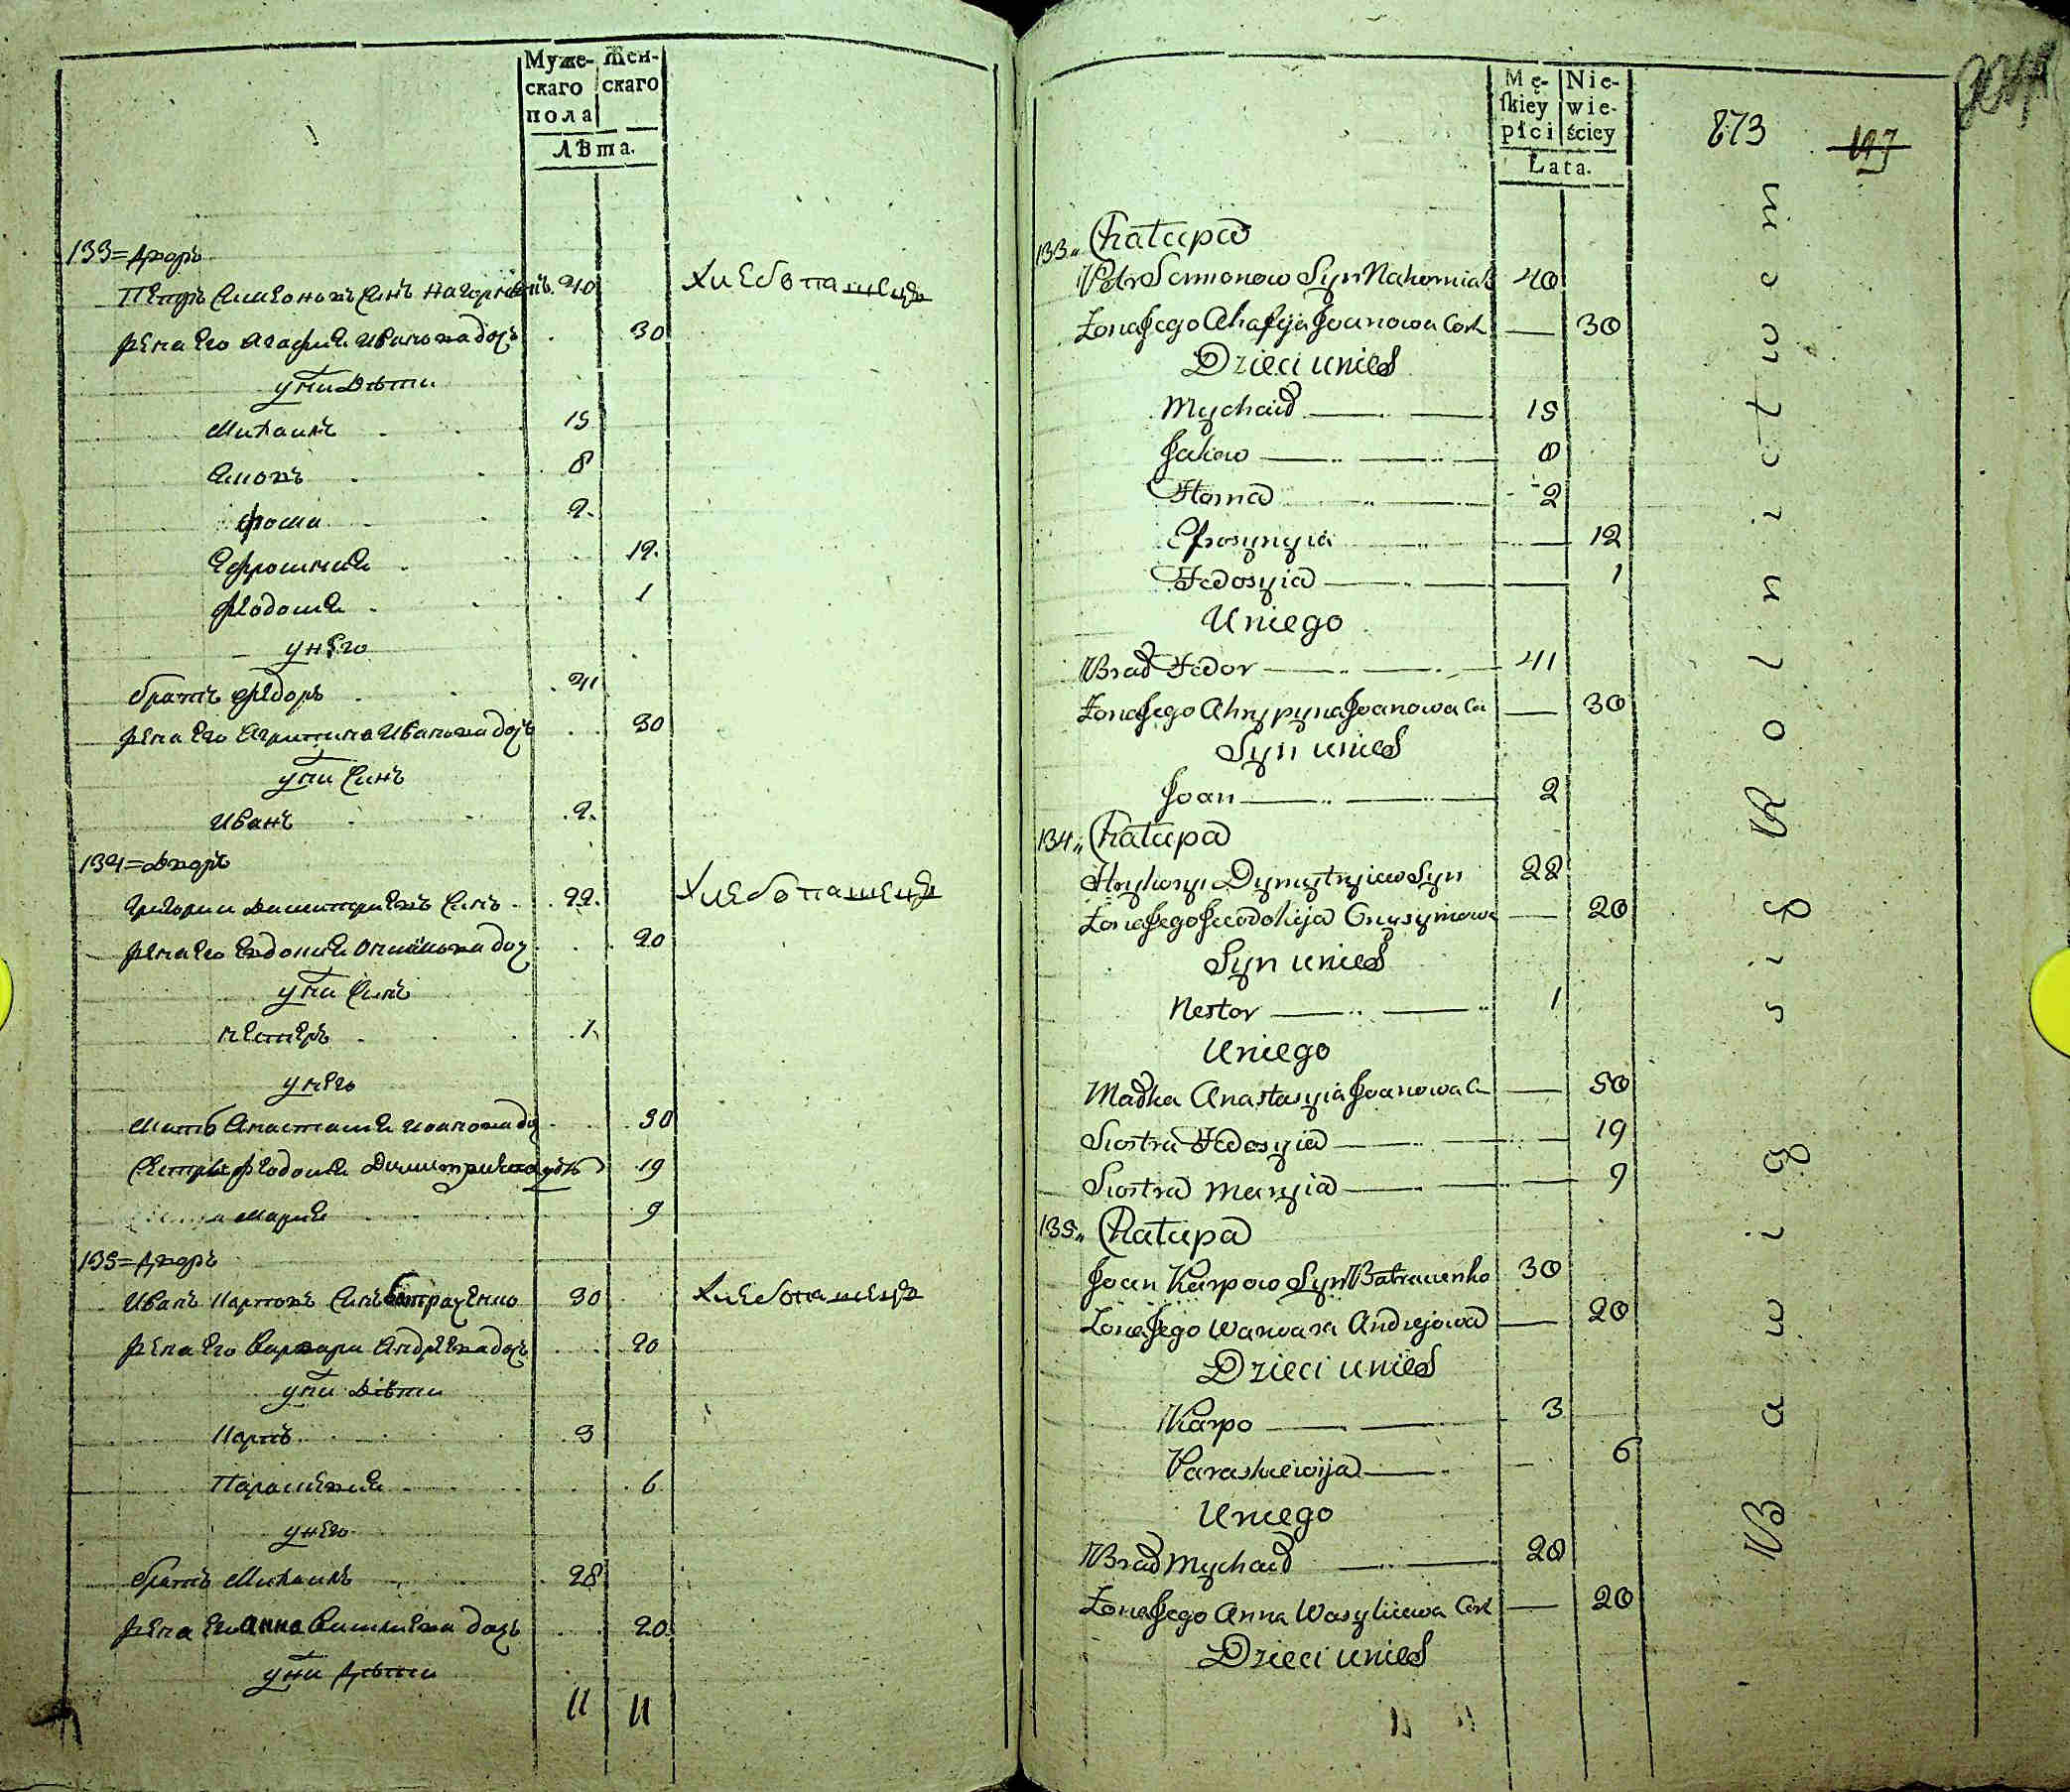 Муже-
скаго
пола
Жен-
скаго
Лѣта.
133 = Дворъ
Петръ Симеоновъ Синъ Нагорнякъ 40
Жена Его Агафия Иванова дочъ 30
у них Дѣти
Михаилъ 15
Яковъ 8
Фома 2
Ефросиния 12
Феодосия 1
у него
братъ Федоръ 41
Жена Его Агрипина Иванова дочъ 30
у них Синъ
Иванъ 2
Хлебопашецъ
134 = Дворъ
Григории Димитриевъ Синъ 22
Жена Его Евдокия Онисимова доч 20
у них Синъ
Нестеръ 1
у него
Мать Анастасия Иванова до 50
Сестра Феодосия Димитриева 19
Мария 9
Хлебопашецъ
135 = Дворъ
Иванъ Карповъ Синъ Батраченко 30
Жена Его Варвара Андреева дочъ 20
у них Дѣти
Карпъ 3
Параскевия 6
у него
братъ Михаилъ 28
Жена Его Анна Василиева дочъ 20
у них Дѣти
Хлебопашецъ
11 11
Mę-
skiey
płci
Nie-
wie-
ściey
Lata.
873
133 „ Chałupa
Petr Semionow Syn Nahorniak 40
Żona Jego Ahafija Joanowa Cork 30
Dzieci unich
Mychaił 15
Jakow 8
Homa 2
Efrosynyia 12
Fedosyia 1
Uniego
Brat Fedor 41
Żona Jego Ahrypyna Joanowa Co 30
Syn unich
Joan 2
134 „ Chałupa
Hryhoryi Dymytryiew Syn 22
Żona Jego Jewdokija Onysymowa 20
Syn unich
Nestor 1
Uniego
Matka Anastasyia Joanowa C 50
Siostra Fedosyia 19
Siostra Maryia 9
135 „ Chałupa
Joan Karpow Syn Batraczenko 30
Żona Jego Warwara Andrejowa 20
Dzieci unich
Karpo 3
Paraskiewija 6
Uniego
Brat Mychaił 28
Żona Jego Anna Wasyliewa Cork 20
Dzieci unich
Bawią się Rolnictwem